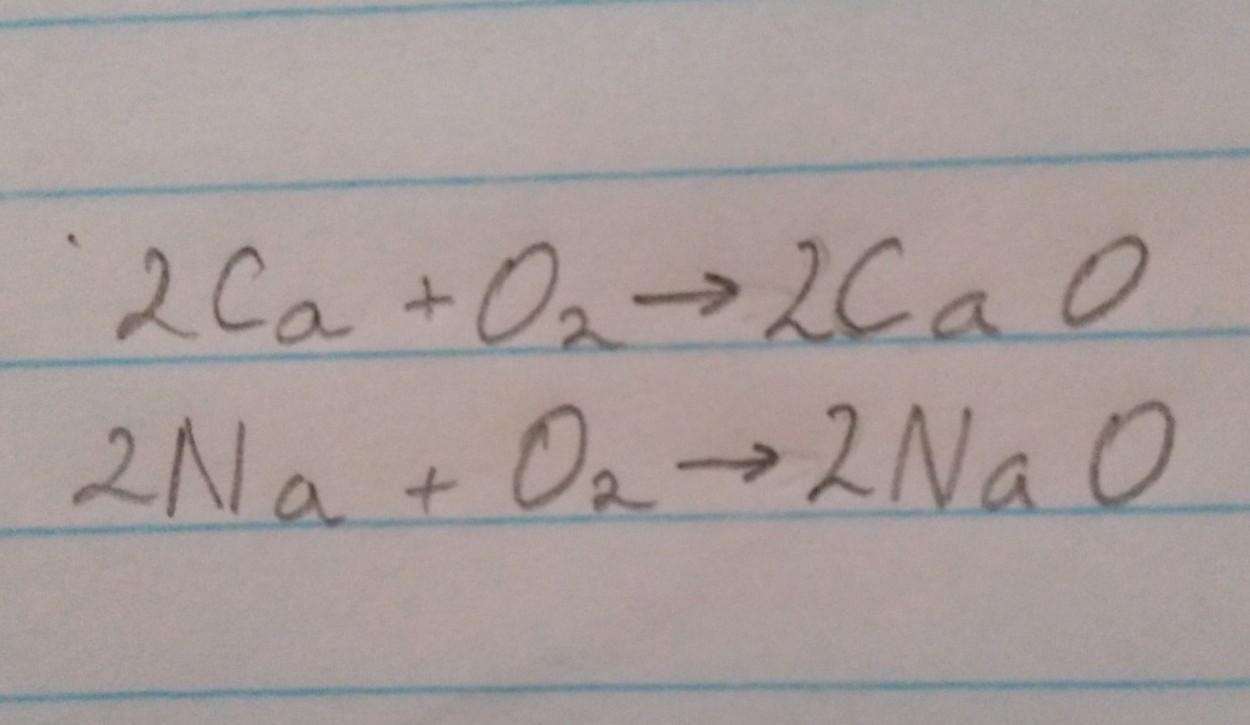 2Ca + O₂ → 2CaO
2Na + O₂ → 2NaO